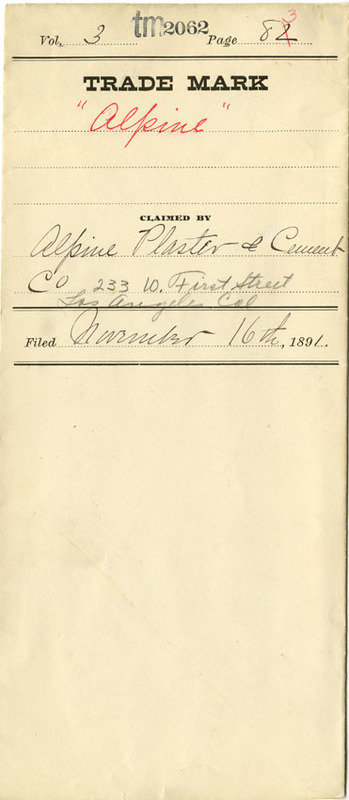 tm2062
Vol. 3 Page 82 3
TRADE MARK
"Alpine"
CLAIMED BY
Alpine Plaster & Cement
Co 233 W. First Street
Los Angeles Cal
Filed November 16th, 1891.